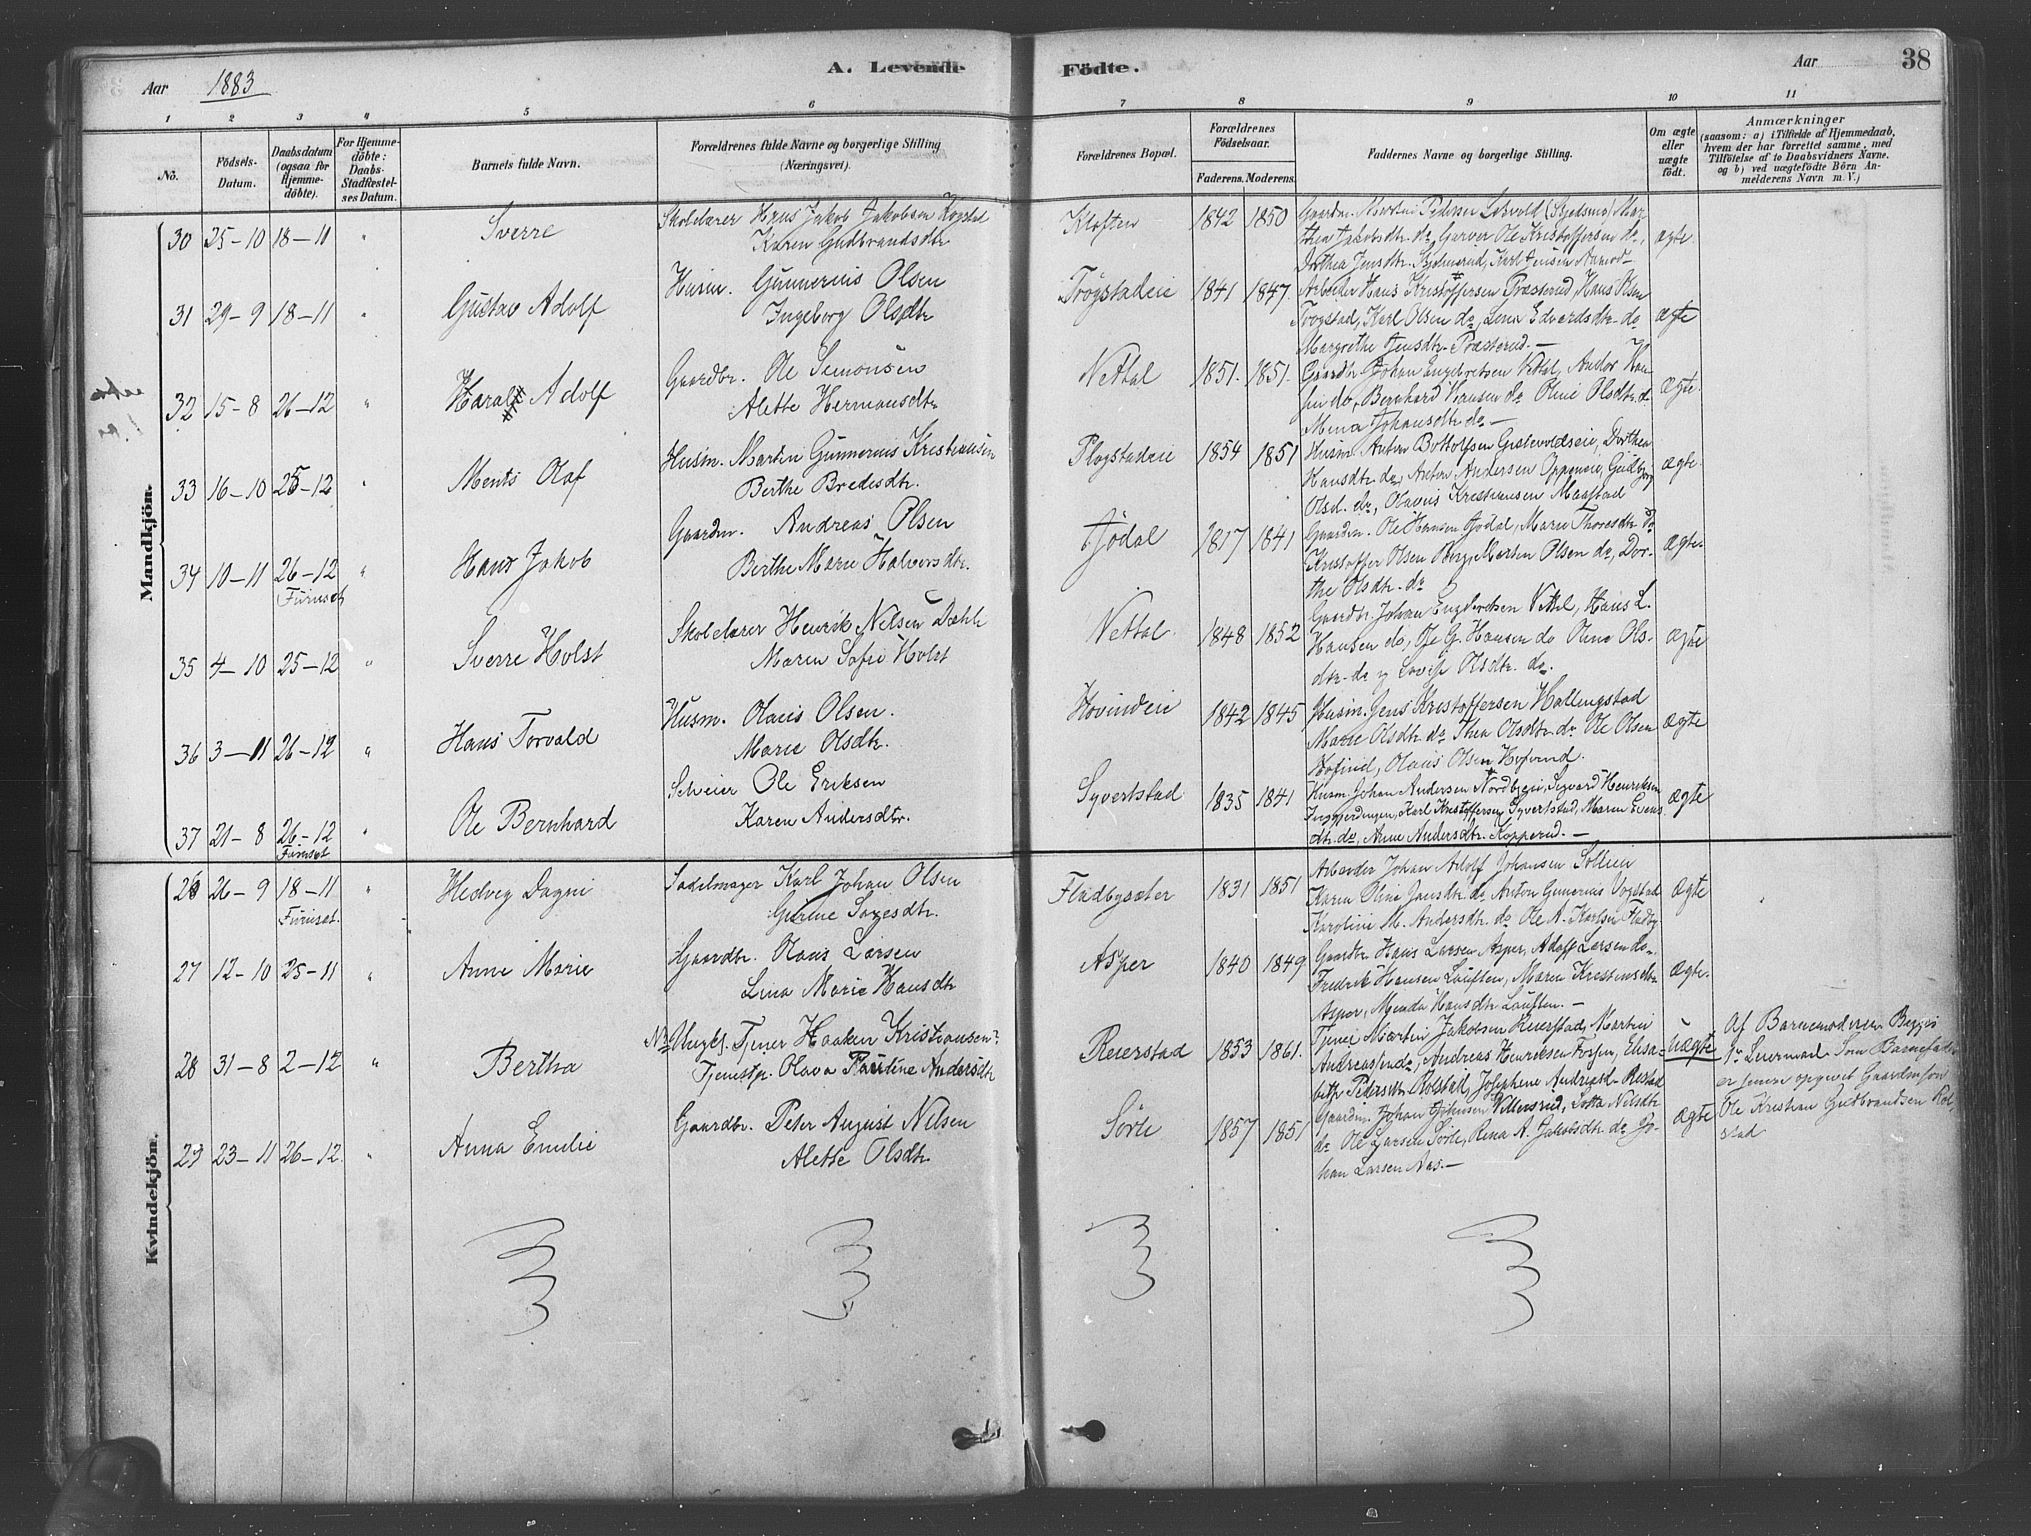 Aar 1883 A. Levende Födte. Aar 38
1 2 3 4 5 6 7 8 9 10 11
No.
Födsels-Datum.
Daabsdatum (ogsaa for Hjemmedöbte).
For Hjemmedöbte: Daabs-Stadfestelses Datum.
Barnets fulde Navn.
Forældrenes fulde Navne og borgerlige Stilling (Næringsvei).
Forældrenes Bopæl.
Forældrenes Födselsaar.
Faderens. Moderens.
Faddernes Navne og borgerlige Stilling.
Om ægte eller uægte födt.
Anmærkninger
(saasom: a) i Tilfælde af Hjemmedaab, hvem der har forrettet samme, med Tilföielse af to Daabsvidners Navne. og b) ved uægtefödte Börn Anmelderens Navn m. V.)
Mandkjön.
30 25-10 18-11 " Sverre Skolelærer Hans Jakob Jakobsen Kogstad
Karen Gudbrandsdtr
Kloften 1842 1850
Gaardm. Martin Pedersen (Skedsmo) Mar-
thea Jakobsdtr. do, Garver Ole Kristoffersen do,
Dorthea Jensdtr. Karl Jensen
ægte.
31 29-9 18-11 " Gustav Adolf Husm. Gunnerius Olsen
Ingeborg Olsdtr
Trøgstadeie 1841 1847.
Arbeider Hans Kristoffersen Præsterud, Hans Olsen
Trøgstad, Karl Olsen do, Lena Edvardsdtr. do
Margrethe Jensdtr. Præsterud. —
ægte
32 15-8 26-12 " Harald Adolf Gaardbr. Ole Simonsen
Alette Hermansdtr
Nettal 1851. 1851.
Gaardbr. Johan Engebretsen Nettal, Andor Han-
sen do, Bernhard Hansen do Oline Olsdtr. do
Mina Johansdtr do —
ægte.
33 16-10 25-12 " Ments Olaf Husm. Martin Gunnerius Kristiansen
Berthe Bredesdtr.
Plogstadeie 1854 1851
Husm. Anton Bottolfsen Dorthea
Hansdtr. do, Anton Andersen Oppeneie, Gudbjørg
Olsd. do, Olavus Kristiansen
ægte.
34 10-11 26-12 Furuset " Hans Jakob Gaardm. Andreas Olsen
Berthe Marie Halvorsdtr.
Jødal 1817 1841
Gaardm. Ole Hansen Jødal, Marie Thoresdtr do
Kristoffer Olsen Berg, Martin Olsen do, Dor-
the Olsdtr. do
ægte
35 4-10 25-12 " Sverre Holst Skolelærer Henrik Nilsen Dæhle
Maren Sofie Holst
Nettal. 1848 1852
Gaardbr. Johan Engebretsen Nettal, Hans L.
Hansen do, Ole G. Hansen do Oline Ols-
dtr. do og Lovise Olsdtr. do.
ægte
36 3-11 26-12 " Hans Torvald Husm. Olaus Olsen.
Marie Olsdtr.
Hovindeie 1842 1845
Husm. Jens Kristoffersen Hallingstad
Marie Olsdtr do Thea Olsdtr. do Ole Olsen
Hofind, Olaus Olsen Hofind.
ægte
37 21-8 26-12 Furuset " Ole Bernhard Selveier Ole Eriksen
Karen Andersdtr.
Syvertstad 1835 1841
Husm. Johan Andersen Nordbyeie, Sigvard Henriksen
Karl Kristoffersen Syvertstad, Maren Evens
dtr. do, Anne Andersdtr. Kopperud. —
ægte
Kvindekjön.
26 26-9 18-11 Furuset. " Hedvig Dagni Sadelmager Karl Johan Olsen
Gurine
Fladbysæter 1831 1851
Arbeider Johan Adolf Johansen
Karen Oline Jensdtr. do Anton Gunerius
Karoline M. Andersdtr. do Ole A. Karlsen Fladby
ægte
27 12-10 25-11 " Anne Marie Gaardbr. Olaus Larsen
Lina Marie Hansdtr
Asper 1840 1849
Gaardbr. Hans Larsen Asper, Adolf Larsen do,
Fredrik Hansen Lauften, Maren Kristensdtr
Asper, Menda Hansdtr Lauften. —
ægte.
28 31-8 2-12 " Bertha Ungk. Tjener Haaken Kristiansen
Tjenstp. Olava Pauline Andersdtr
Reierstad 1853 1861.
Tjener Martin Jakobsen Reierstad, Martin
Andreassen do, Andreas Henriksen Elisa-
beth Pedersdtr. Kolstad, Josephine Andreasd.
Uægte
Af Barnemoderen
1ste Leiermaal. Som Barnefader
er senere opgivet Gaardmsøn
Ole Kristian Gudbrandsen Kol-
stad
29 23-11 26-12. " Anna Emilie Gaardbr. Peter August Nilsen
Alette Olsdtr.
Sörli 1857 1851
Gaardm. Johan Johnsen Lotta Nilsdtr
do Ole Larsen Sörli, Rina A. Jakobsdtr. do Jo-
han Larsen Aas. —
ægte